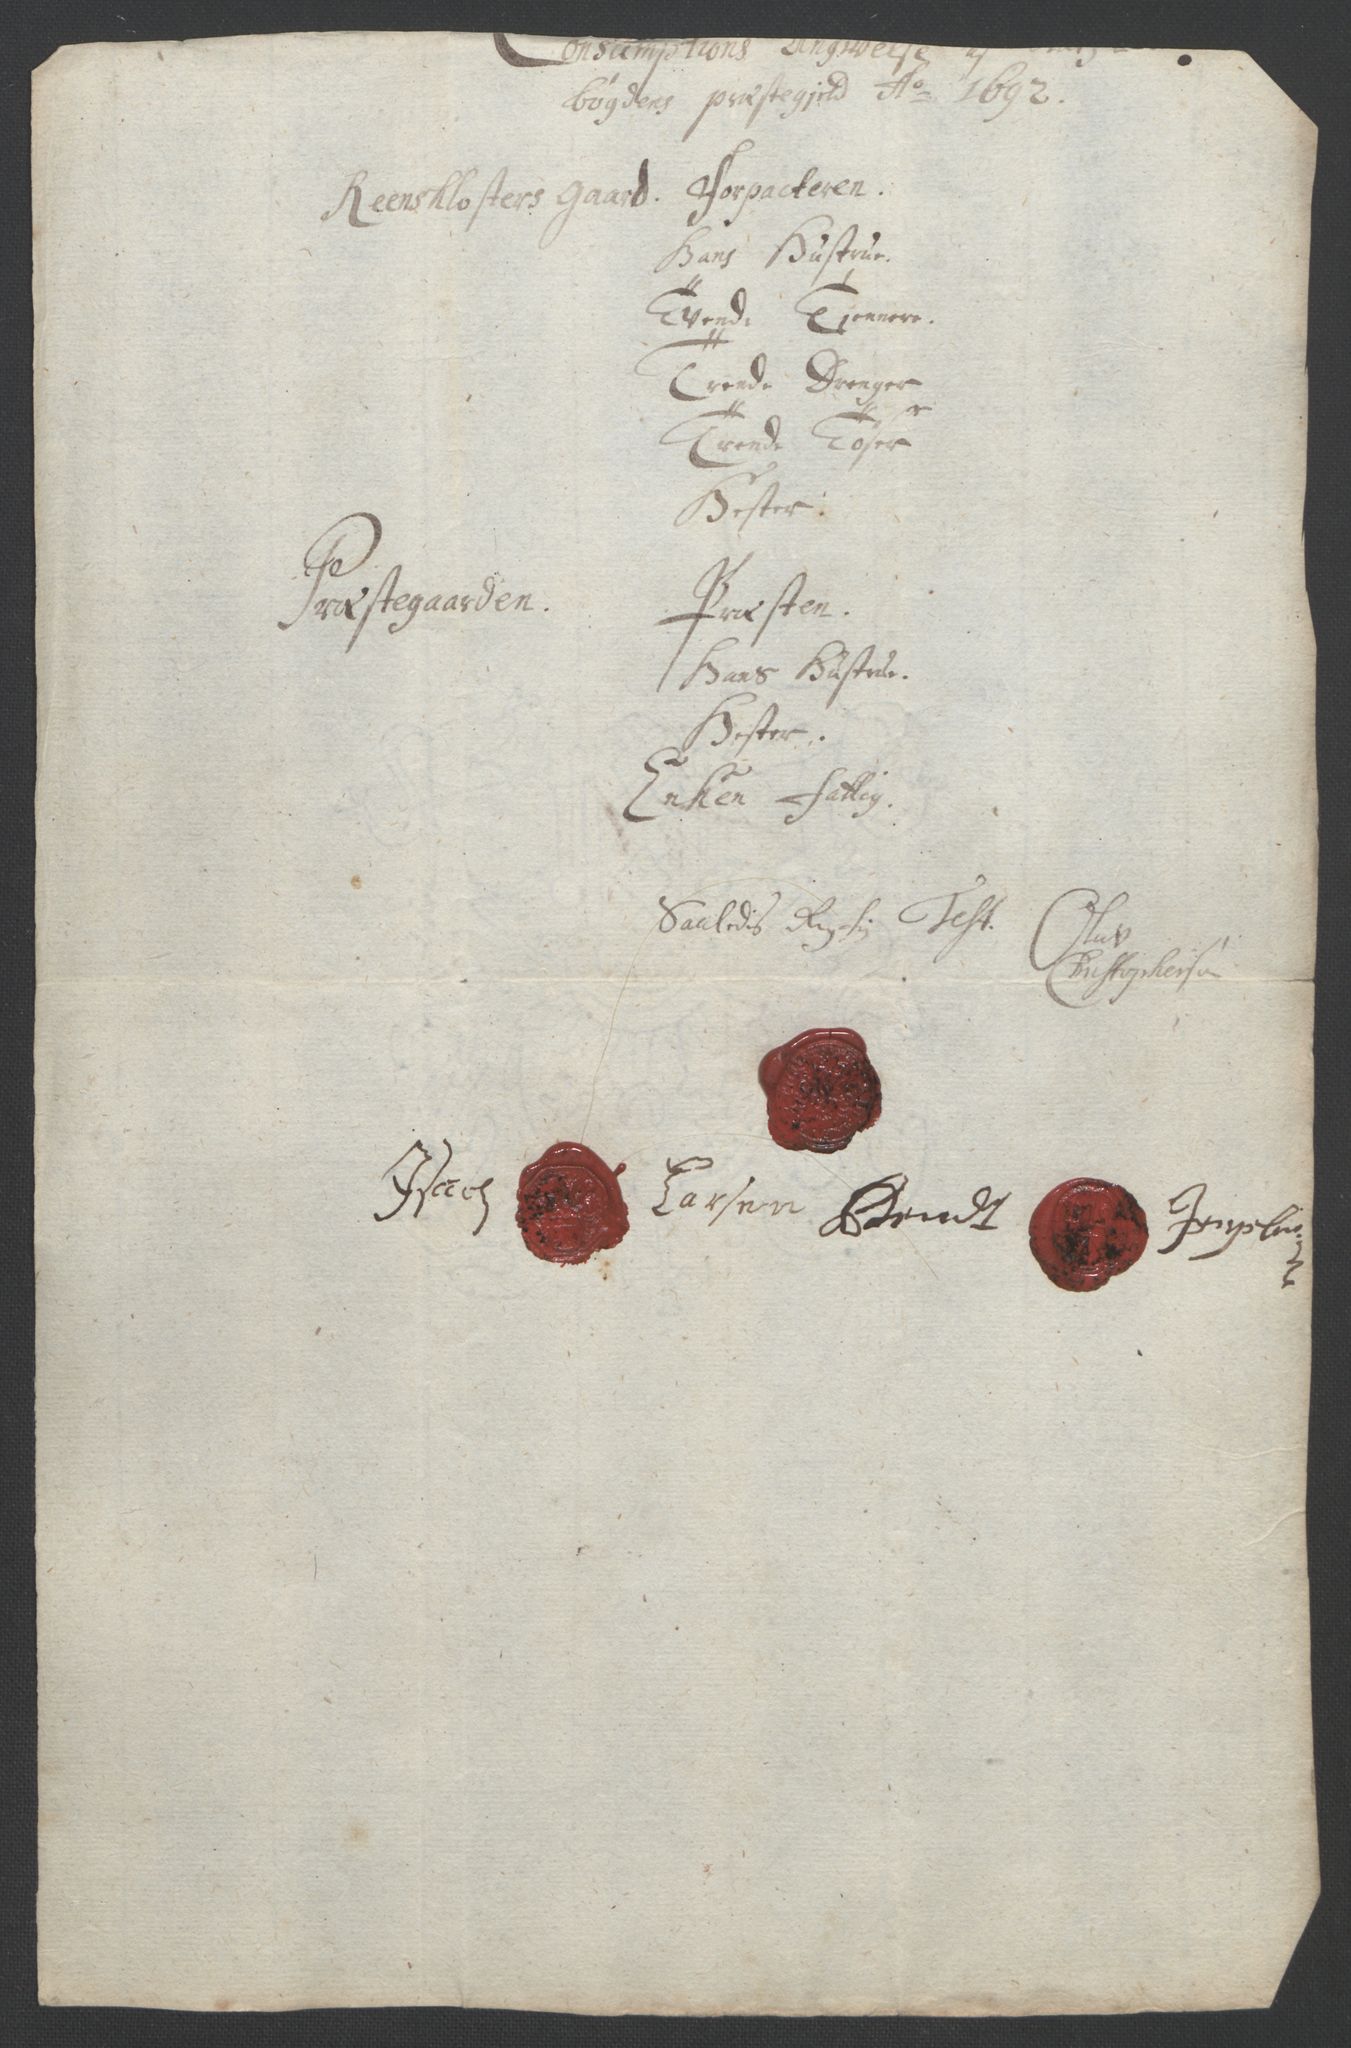 Consumptions Angiveelse af
bøgdens præstegjeld Ao 1692.
Reensklosters gaard. Forpacteren.
Hans Hustrue.
Tvende Tjennere.
Trende Drenger
Trende Töser
Hester.
Præstegaarden. Præsten.
Hans Hustrue.
Hester.
Enken fattig.
Saaledis Test. Oluv
Christophersøn
Isach Larsen Bendt